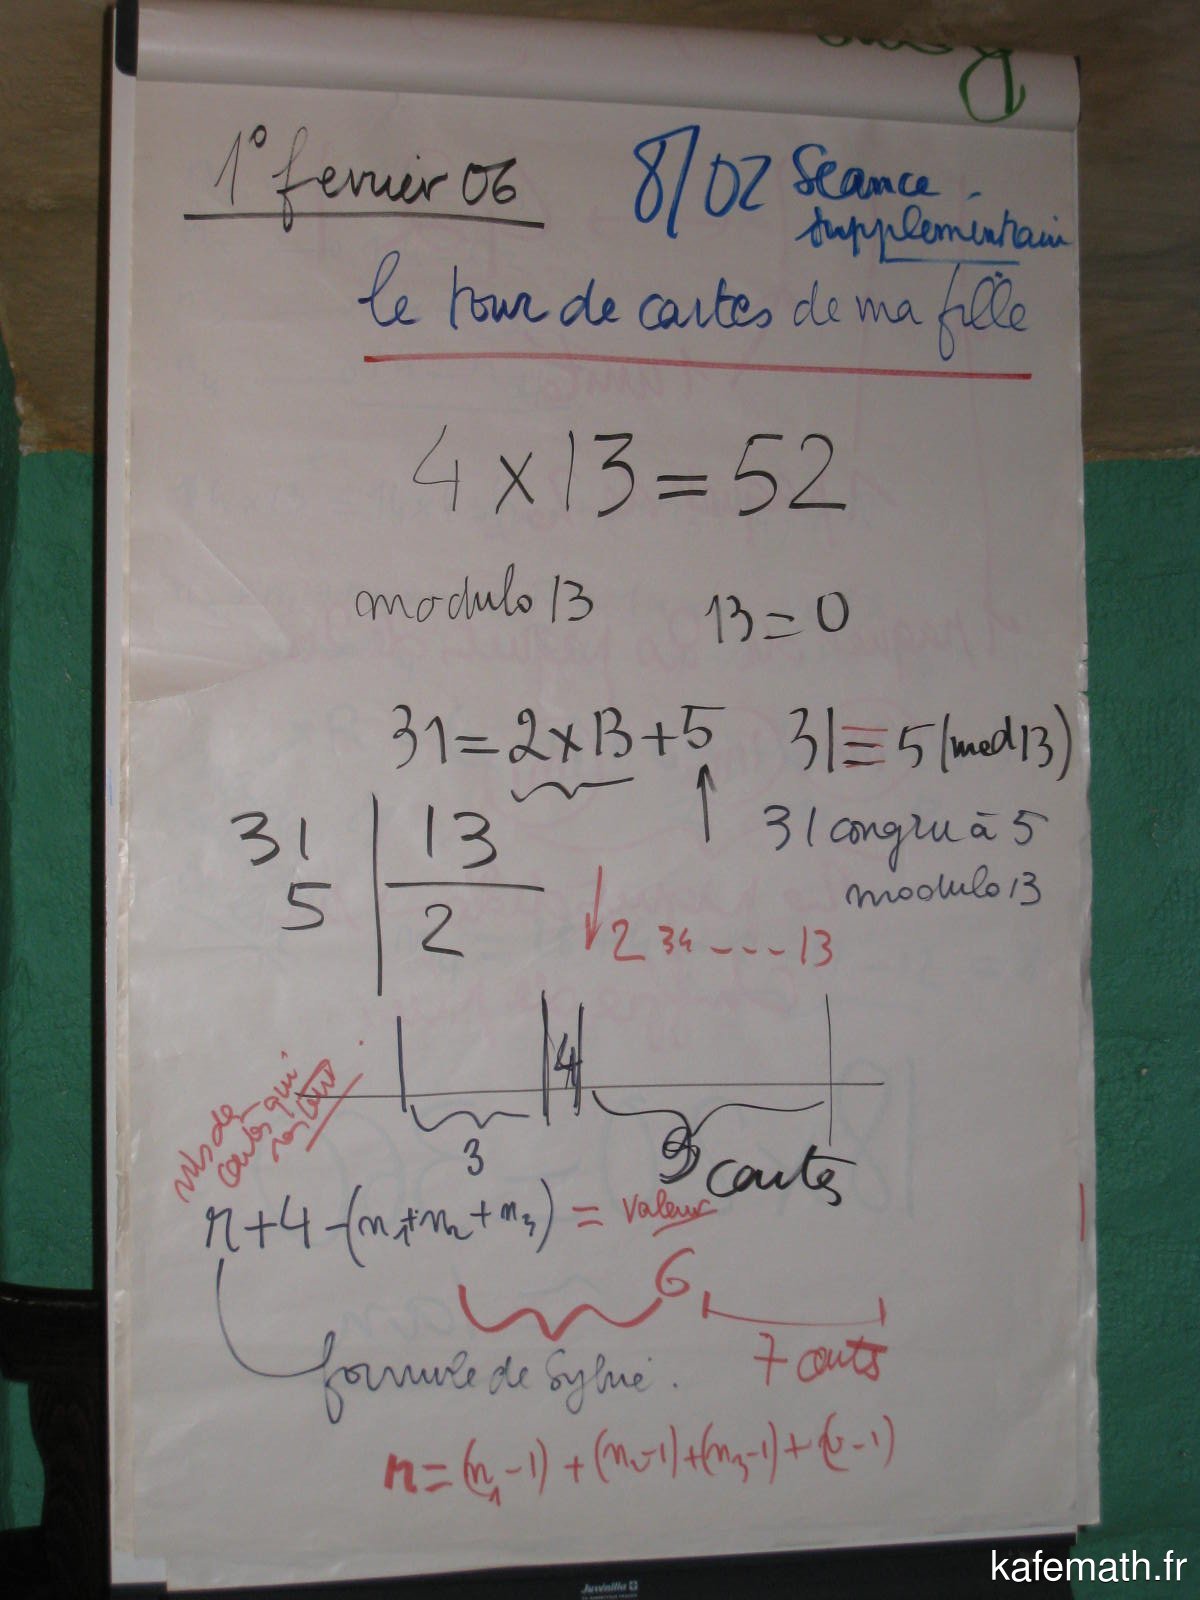 1° fevrier 06
8/02 Seance
supplementaire
le tour de cartes de ma fille
4 x 13 = 52
modulo 13 13 = 0
31 = 2 x 13 + 5 31 ≡ 5 (mod 13)
31 13
5 2
31 congru à 5
modulo 13
2 34 --- 13
4
3
9 cartes
cartes qui
restent
r + 4 - (n₁ + n₂ + n₃) = valeur
6
7 cartes
formule de Sylvie.
r = (n₁ - 1) + (n₂ - 1) + (n₃ - 1) + (v - 1)
Juvenilia
kafemath.fr